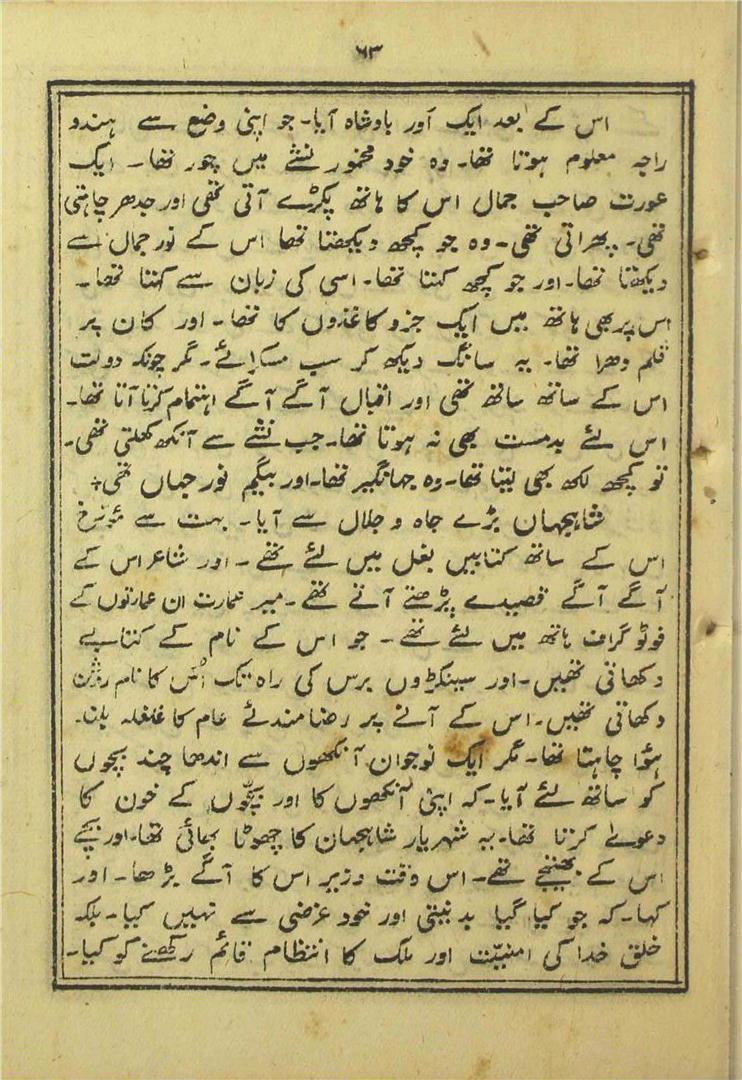 ۶۳
اس کے بعد ایک اور بادشاہ آیا۔ جو اپنی وضع سے ہندو
راجہ معلوم ہوتا تھا۔ وہ خود مخمور نشے میں چور تھا۔ ایک
عورت صاحب جمال اس کا ہاتھ پکڑے آتی تھی اور جدھر چاہتی
تھی۔ پھراتی تھی۔ وہ جو کچھ دیکھتا تھا اس کے نور جمال سے
دیکھتا تھا۔ اور جو کچھ کہتا تھا۔ اسی کی زبان سے کہتا تھا۔
اس پر بھی ہاتھ میں ایک جزو کاغذوں کا تھا۔ اور کان پر
قلم دھرا تھا۔ یہ سانگ دیکھ کر سب مسکرائے۔ مگر چونکہ دولت
اس کے ساتھ ساتھ تھی اور اقبال آگے آگے اہتمام کرتا آتا تھا۔
اس لئے بدمست بھی نہ ہوتا تھا۔ جب نشے سے آنکھ کھلتی تھی۔
تو کچھ لکھ بھی لیتا تھا۔ وہ جہانگیر تھا۔ اور بیگم نور جہاں تھی÷
شاہجہان بڑے جاہ و جلال سے آیا۔ بہت سے مؤرخ
اس کے ساتھ کتابیں بغل میں لئے تھے۔ اور شاعر اس کے
آگے آگے قصیدے پڑھتے آتے تھے۔ میر عمارت ان عمارتوں کے
فوٹو گراف ہاتھ میں لئے تھے۔ جو اس کے نام کے کتابے
دکھاتی تھیں۔ اور سینکڑوں برس کی راہ تک اُس کا نام روشن
دکھاتی تھیں۔ اس کے آنے پر رضامندئے عام کا غلغلہ بلند
ہؤا چاہتا تھا۔ مگر ایک نوجوان آنکھوں سے اندھا چند بچوں
کو ساتھ لئے آیا۔ کہ اپنی آنکھوں کا اور بچّوں کے خون کا
دعوےٰ کرتا تھا۔ یہ شہریار شاہجہان کا چھوٹا بھائی تھا۔ اور بچے
اس کے بھتیجے تھے۔ اس وقت وزیر اس کا آگے بڑھا۔ اور
کہا۔ کہ جو کیا گیا بدنیتی اور خود غرضی سے نہیں کیا۔ بلکہ
خلق خدا کی امنیّت اور ملک کا انتظام قائم رکھنے کو کیا۔